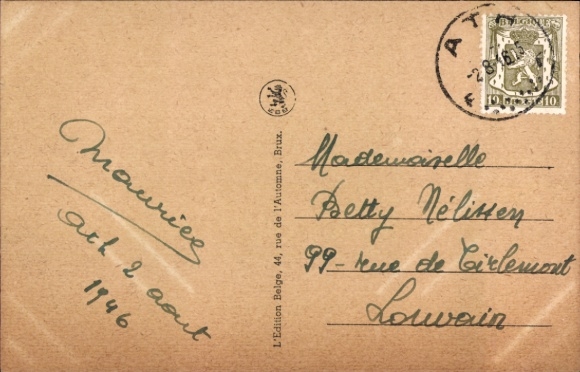 Maurice
Ath 2 aout
1946
L'Edition Belge, 44, rue de l'Automne, Brux.
ATH
BELGIQUE
10 BELGIE 10
Mademoiselle
Betty Nélissen
99 - rue de Tirlemont
Louvain